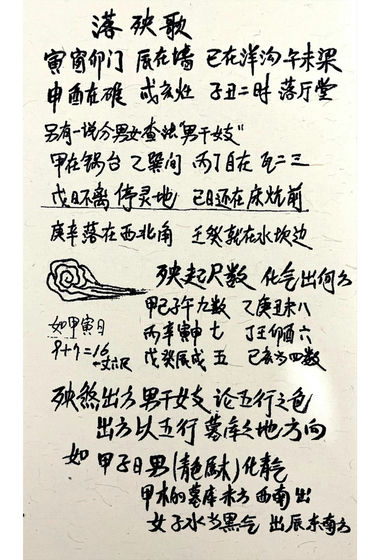 落殃歌
寅窗卯门 辰在墙 巳在洋沟午未梁
申酉在碓 戌亥灶 子丑二时落厅堂
另有一说分男女查法"男干女支"
甲在锅台 乙梁间 丙丁自在瓦二三
戊日不离停灵地 己日还在床炕前
庚辛落在西北南 壬癸就在水坎边
殃起尺数 化气出何方
甲己子午九数 乙庚丑未八
如甲寅日
丙辛寅申七 丁壬卯酉六
9+7=16
一丈六尺
戊癸辰戌五 己亥当四数
殃煞出方男干女支 论五行之色
出方以五行墓库之地方向
如甲子日男(青色属木)化青气
甲木的墓库未方 西南出
女子水为黑气 出辰东南方